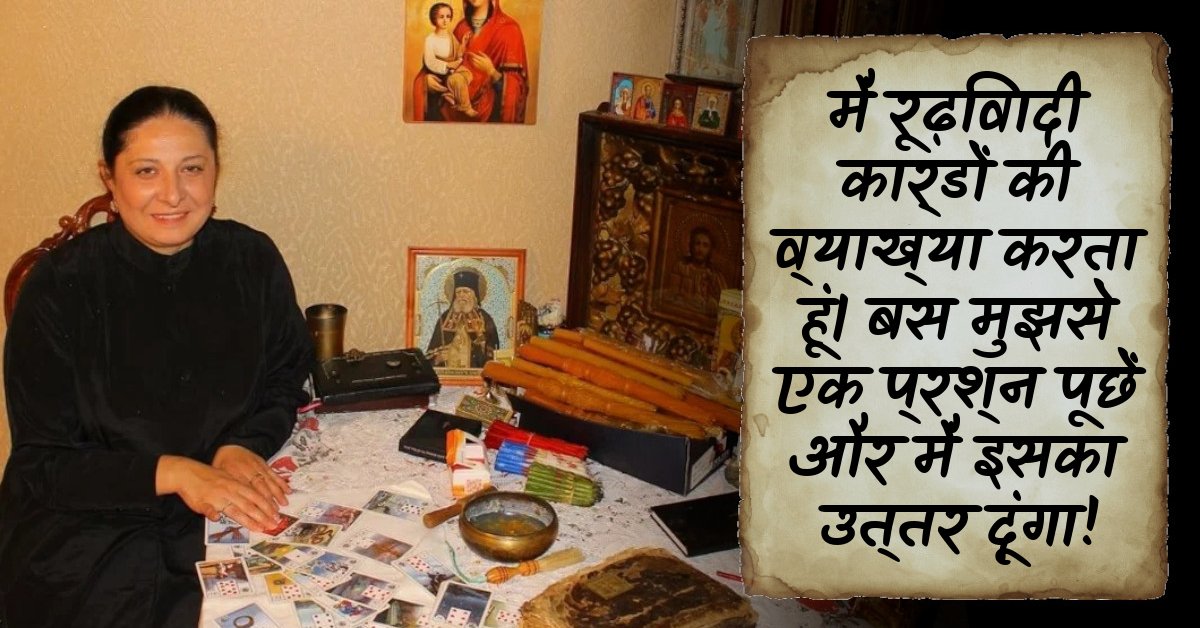 मैं रूढ़िवादी
कार्डों की
व्याख्या करता
हूं। बस मुझसे
एक प्रश्न पूछें
और मैं इसका
उत्तर दूंगा!